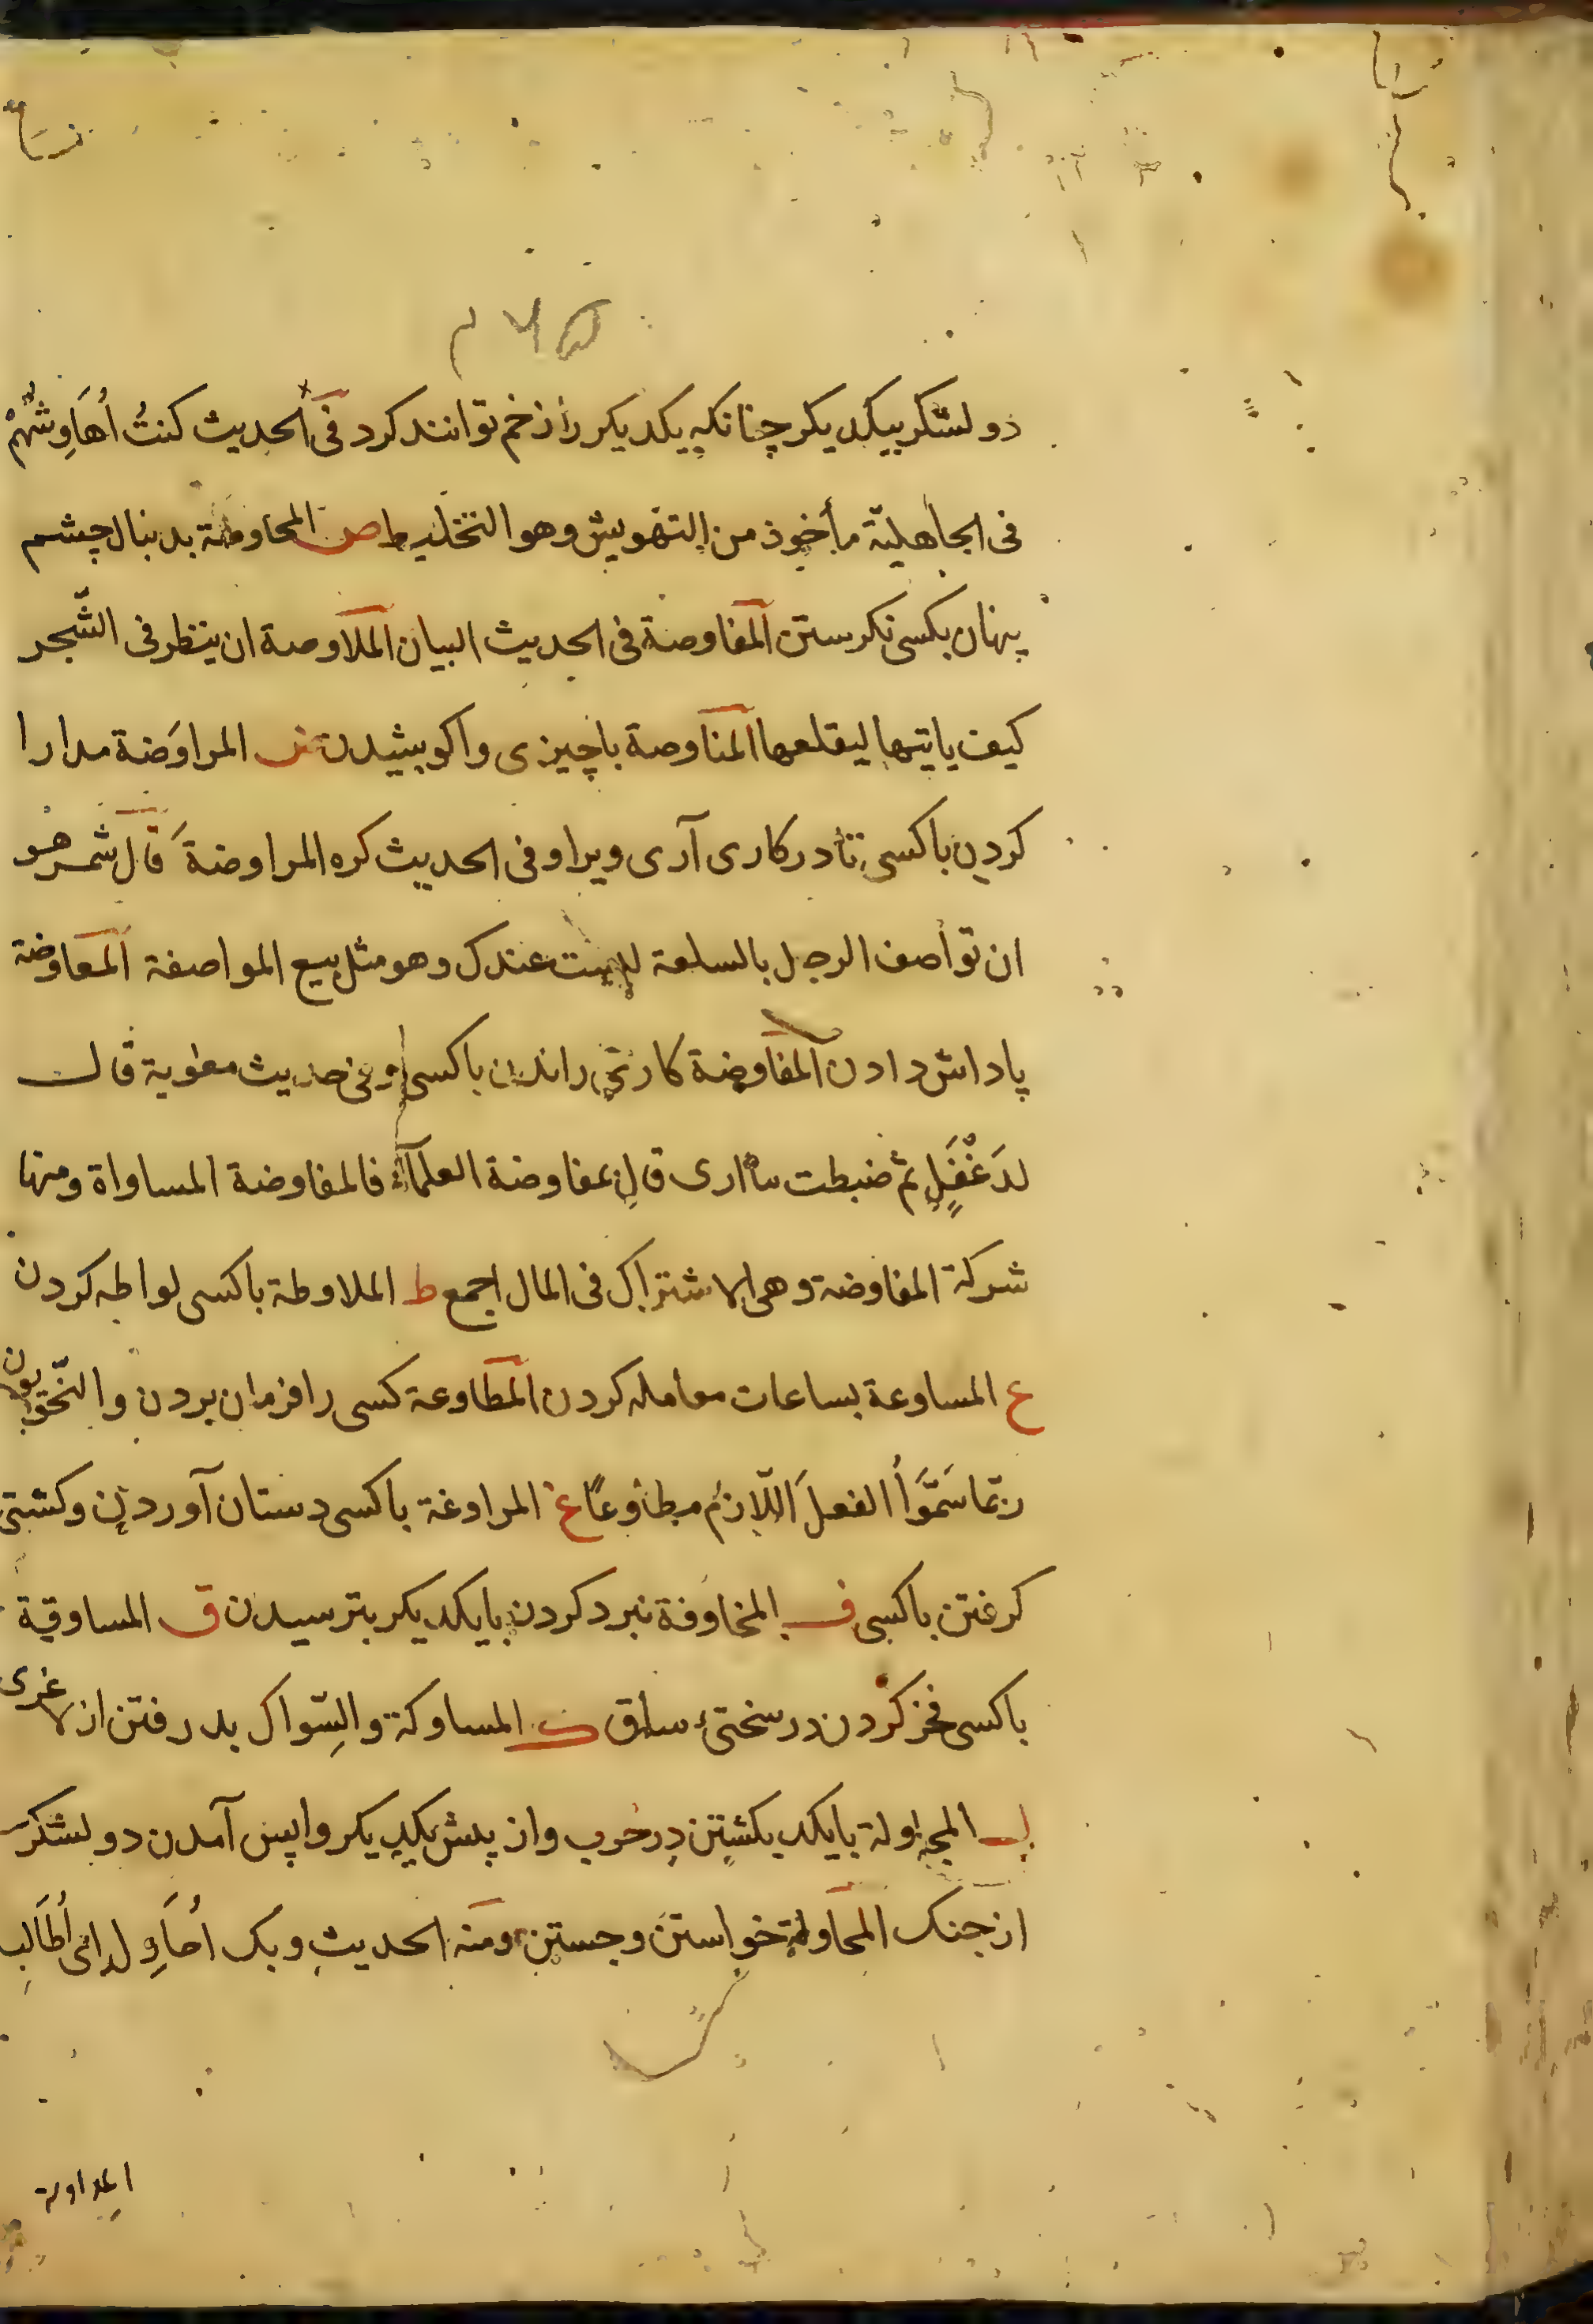 دو لشکر بیکدیکر چنانکه یکدیکر را زخم توانند کرد فی الحدیث کنتُ أُهَاوِشُهُمْ
فی الجاهلیّة مأخوذ من التهویش وهو التخلیط ص المحاوصة بدنبال چشم
پنهان بکسی نکرستن المفاوصة فی الحدیث البیان الملاوصة ان ینظر فی الشّجر
کیف یاتیها لیقلعها المناوصة باچیزی واکوشیدن ض المراوَضة مدارا
کردن باکسی تا در کاری آری ویرا و فی الحدیث کره المراوضةَ قال شمر هو
ان تواصف الرجل بالسلعة لیست عندک وهو مثل بیع المواصفة المعاوضة
پاداش دادن المفاوضة کار راندن باکسی و فی حدیث معویة قال
لدَغْفَلٍ ضبطت ما اری قال بمفاوضة العلمآء فالمفاوضة المساواة ومنها
شرکة المفاوضة وهی الاشتراک فی المال اجمع ط الملاوطة باکسی لواطه کردن
ع المساوعة بساعات معامله کردن المطاوعة کسی را فرمان بردن والنّحویون
ربّما سَمَّوا الفعلَ اللّازمُ مطاوعًا غ المراوغة باکسی دستان آوردن وکشتی
کرفتن باکسی ف المخاوفة نبرد کردن بایکدیکر بترسیدن ق المساوقة
باکسی فخر کردن در سختیٔ ساق ک المساوکة والسِّواک بد رفتن از لاغری
ل المجاولة بایکدیکر کشتن در حرب واز پیش یکدیکر واپس آمدن دو لشکر
از جنک المحاولة خواستن وجستن ومنه الحدیث وبک أُحَاوِل ای أُطَالِب
المداولة